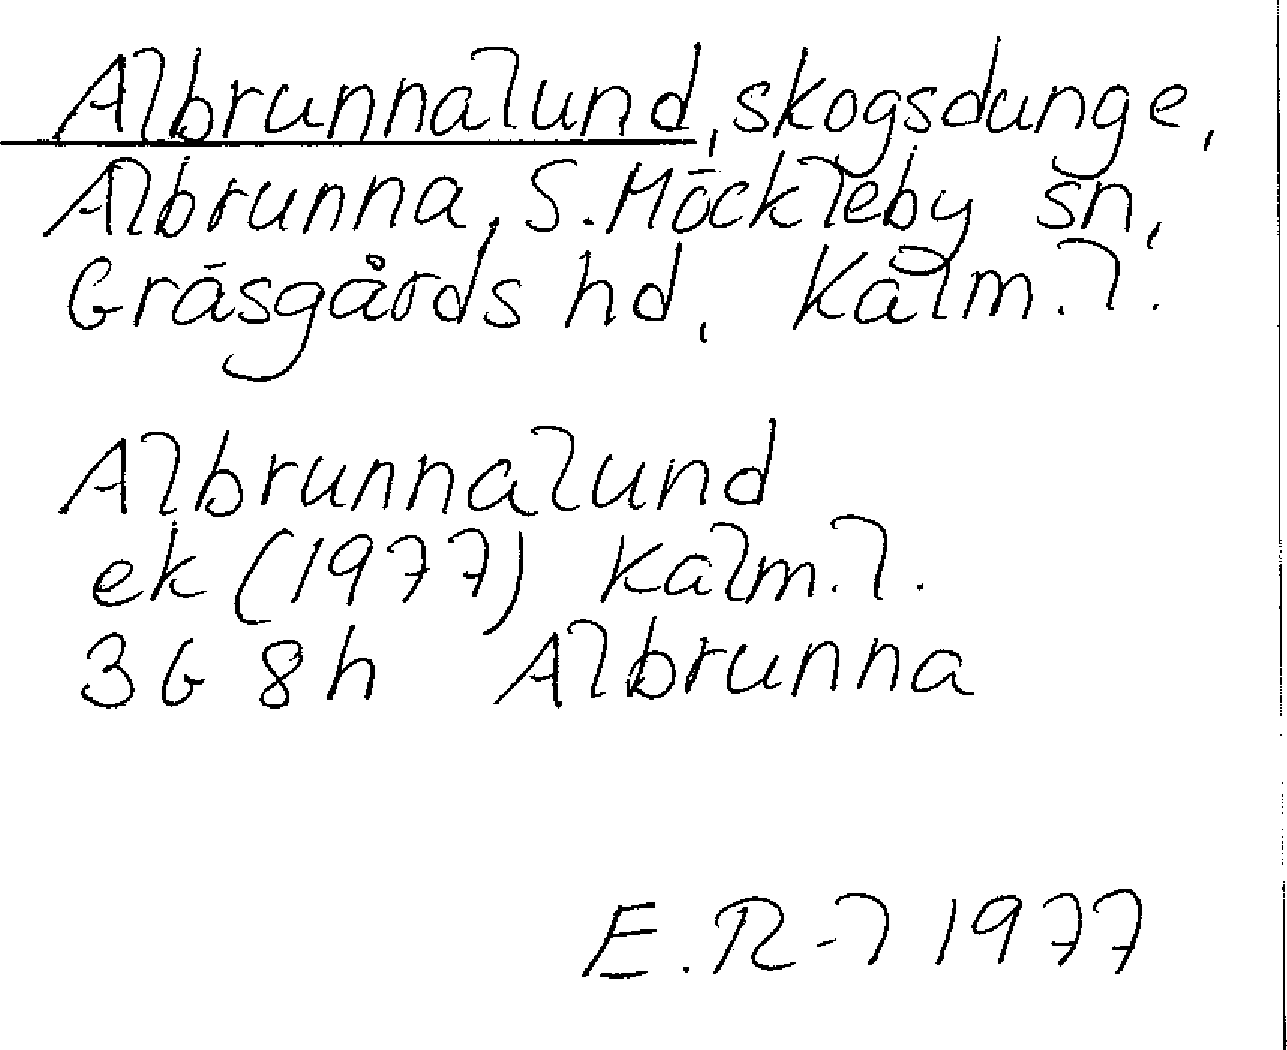 Albrunnalund, skogsdunge,
Albrunna, S. Möckleby sn,
Gräsgårds hd, Kalm. l.
Albrunnalund
ek (1977) Kalm. l.
3G 8h Albrunna
E. R-l 1977